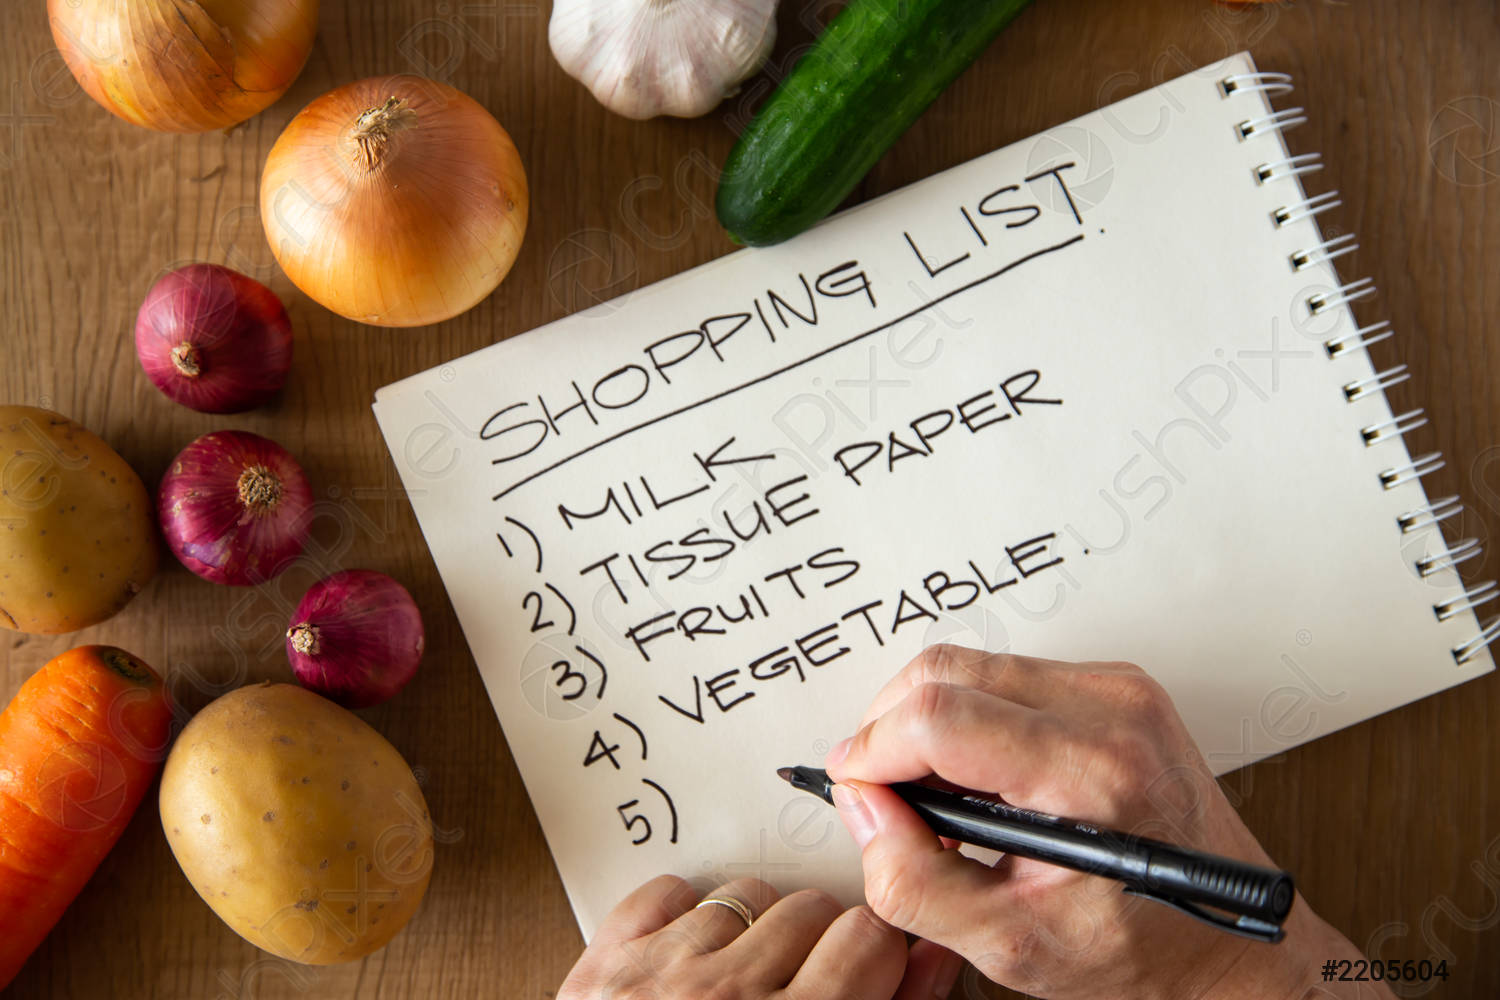 SHOPPING LIST.
1) MILK
2) TISSUE PAPER
3) FRUITS
4) VEGETABLE.
5)
crushpixel
#2205604